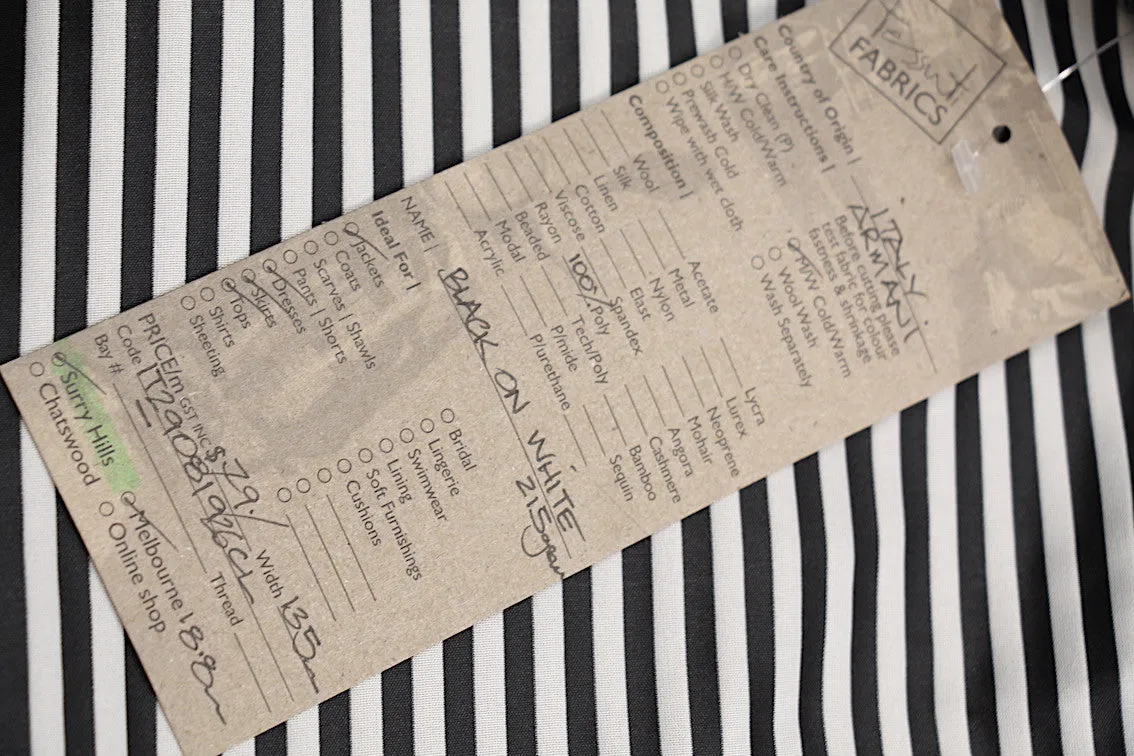 Tessuti
FABRICS
Country of Origin | ITALY.
ARMANI
Care Instructions | Before cutting please
test fabric for colour
fastness & shrinkage
Dry Clean (P)
H/W Cold/Warm
Silk Wash
Prewash Cold
Wipe with wet cloth
M/W Cold/Warm
Wool Wash
Wash Separately
Composition |
Wool
Silk
Linen
Cotton
Viscose
Rayon
Beaded
Modal
Acrylic
Acetate
Metal
Nylon
Elast
Spandex
100% Poly
Tech/Poly
P/mide
P/urethane
Lycra
Lurex
Neoprene
Mohair
Angora
Cashmere
Bamboo
Sequin
NAME | BLACK ON WHITE
215gram
Ideal For |
Jackets
Coats
Scarves | Shawls
Pants | Shorts
Dresses
Skirts
Tops
Shirts
Sheeting
Bridal
Lingerie
Swimwear
Lining
Soft Furnishings
Cushions
PRICE/m GST INC $29./ Width 135m
Code IT29081926CL Thread
Bay #
Surry Hills Melbourne 18.8m
Chatswood Online shop